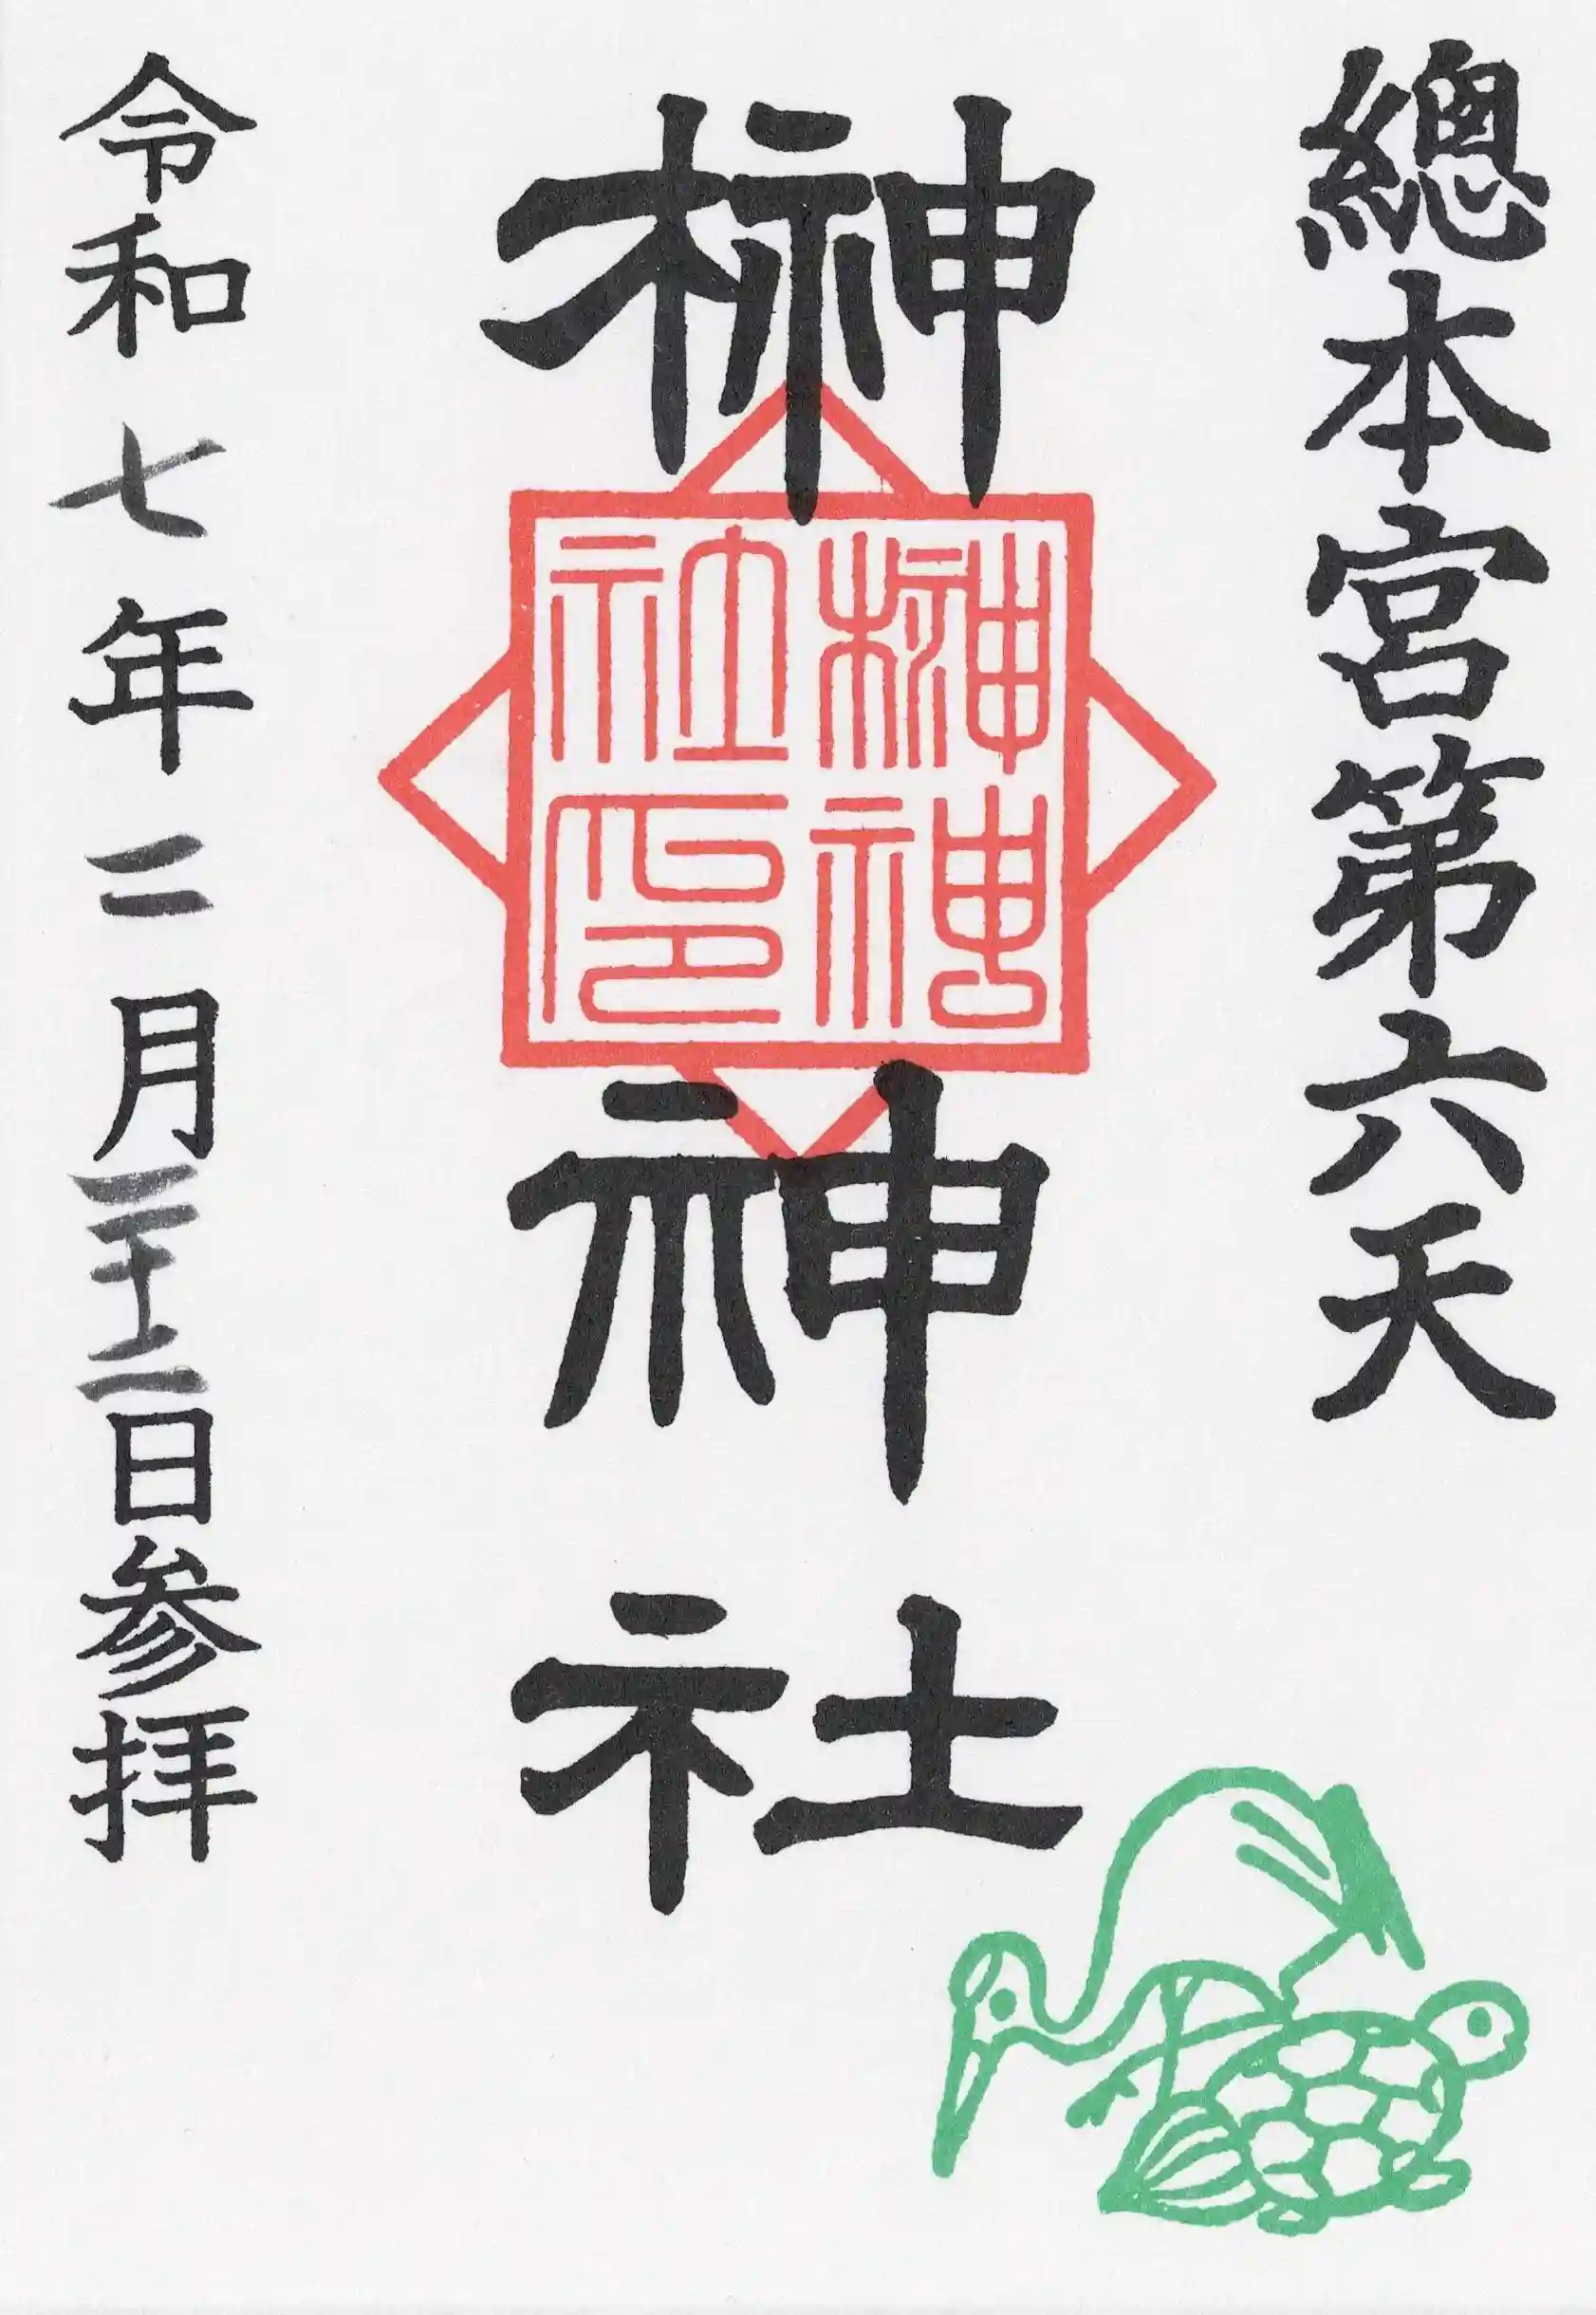 總本宮第六天
榊神社
榊神
社印
令和七年二月二十二日参拝